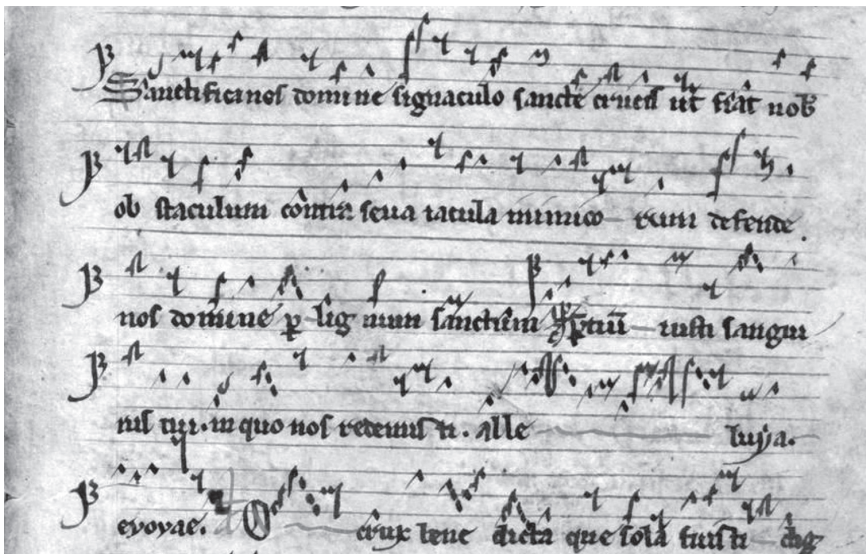 Sanctifica nos domine signaculo sancte crucis ut fiat nob
ob staculum contra seua iacula inimico rum defende
nos domine p lig num sanctum p tium iusti sangui
nis tui. in quo nos redemis ti. alle luya.
evovae. O crux bene dicta que sola fuisti